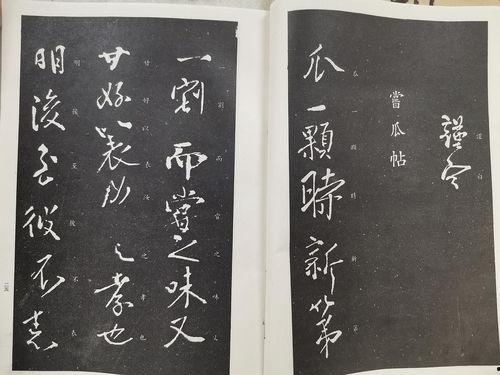 謹空
嘗瓜帖
瓜一顆時新第
一割而嘗之味又
甘好以表汝之孝也
明後至彼不